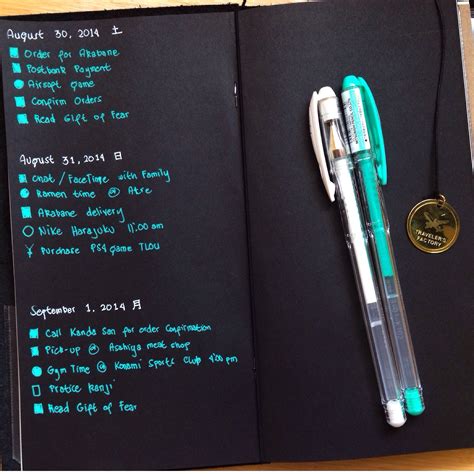 August 30, 2014 土
Order for Akabane
Postbank Payment
Airsoft game
Confirm Orders
Read Gift of Fear
August 31, 2014 日
Chat / FaceTime with Family
Ramen time @ Atre
Akabane delivery
Nike Harajuku 11:00 am
¥ Purchase PS4 game TLOU
September 1, 2014 月
Call Kanda San for order Confirmation
Pick-up @ Asahiya meat shop
Gym Time @ Konami Sports Club 4:00 pm
Pratice kanji
Read Gift of Fear
TRAVELER'S
FACTORY